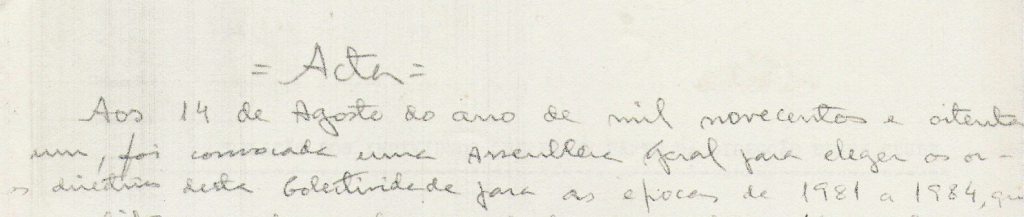 = Acta =
Aos 14 de Agosto do ano de mil novecentos e oitenta
um, foi convocada uma Assembleia Geral para eleger os or-
s directivos desta Colectividade para as épocas de 1981 a 1984,